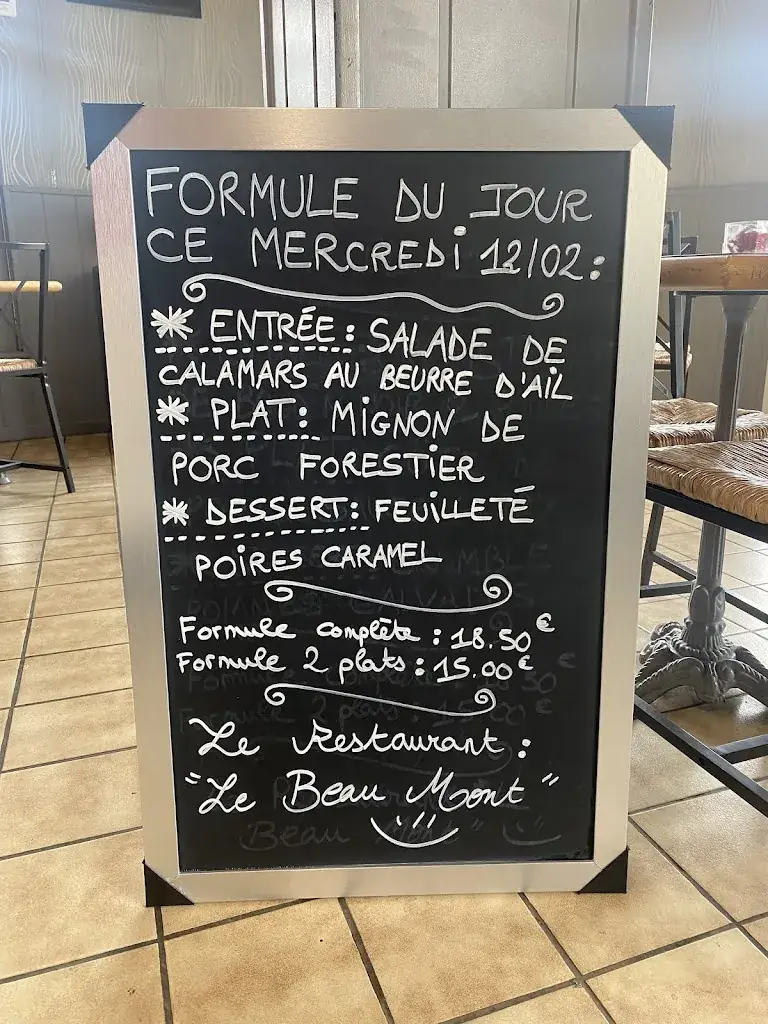 FORMULE DU JOUR
CE MERCREDi 12/02:
* ENTRÉE: SALADE DE
CALAMARS AU BEURRE D'AIL
* PLAT: MIGNON DE
PORC FORESTIER
* DESSERT: FEUiLLETÉ
POIRES CARAMEL
Formule complète : 18.50€
Formule 2 plats : 15.00€
Le Restaurant :
"Le Beau Mont"